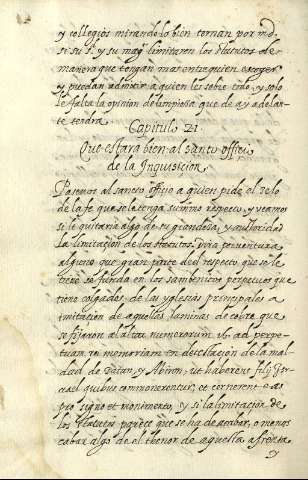 y collegios mirandolo bien ternan por md.
si su S.d y su mag.d limitaren los statutos de
manera que tengan mas entre quien escoger,
y puedan admitir a quien les sobre todo, y solo
le falta la opinion de limpieza que de ay adelan-
te tendra
Capitulo 21
Que estara bien al santo offi.o
de la Inquisicion
Pasemos al sancto officio a quien pide el zelo
de la fe que se le tenga summo respecto, y veamos
si le quitaria algo de su grandeza, y autoridad
la limitacion de los statutos. Diria por ventura
alguno que gran parte del respecto que se le
tiene se funda en los sambenitos perpetuos que
tiene colgados de las yglesias principales a
imitacion de aquellas laminas de cobre que
se fijaron al altar numerorum 16 ad perpe-
tuam rei memoriam en detestacion de la mal-
dad de Datan y Abiron, ut haberent filij Is-
rael quibus commonerentur, et cernerent eas
pro signo et monimento, y si la limitacion de
los statutos parece que se ha de acabar, o menos
cabar algo de el thenor de aquella afrenta
y